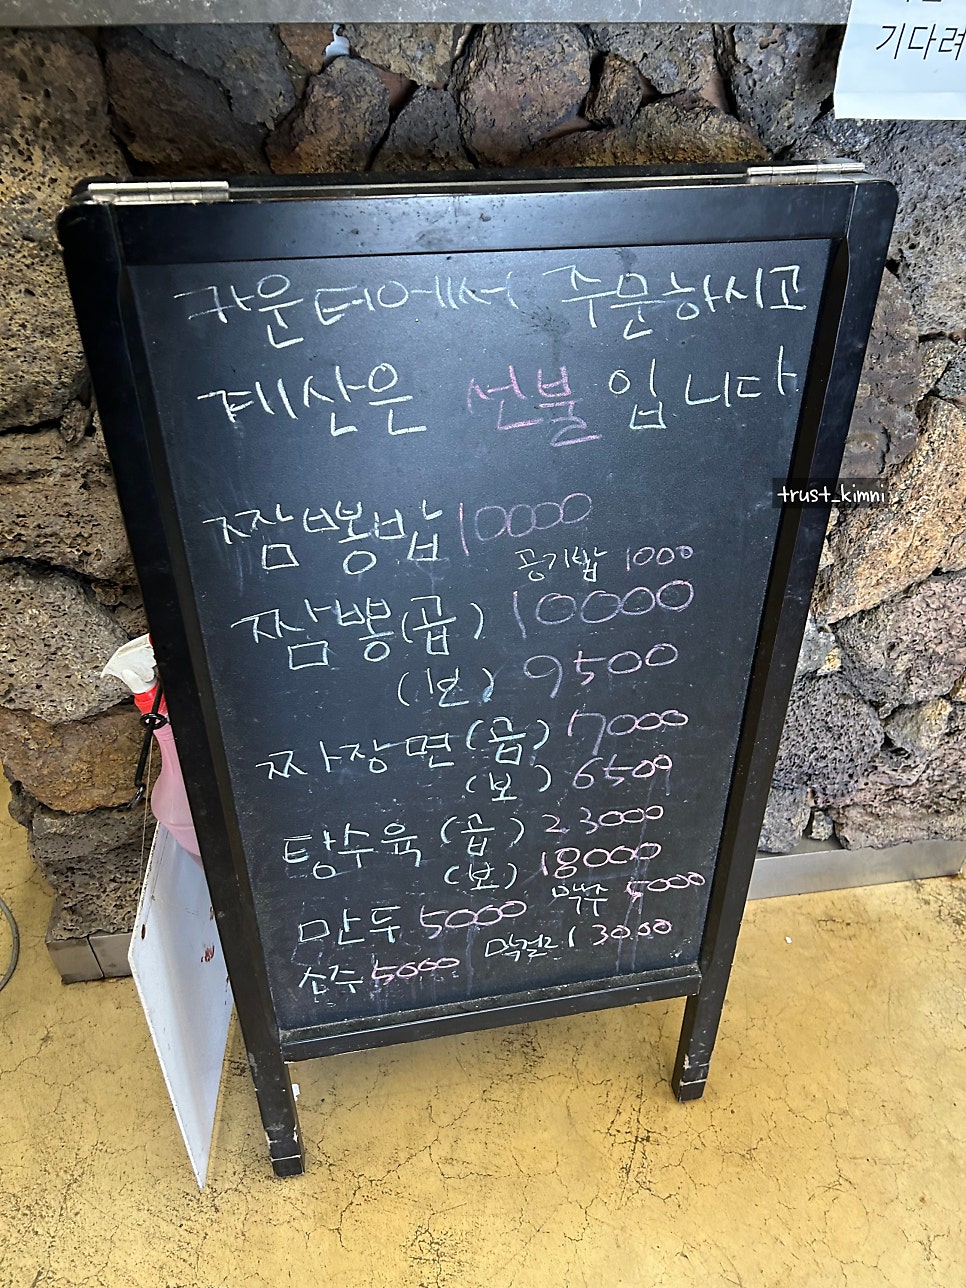 기다려
카운터에서 주문하시고
계산은 선불입니다
trust_kimni
짬뽕밥 10000
공기밥 1000
짬뽕(곱) 10000
(보) 9500
짜장면(곱) 7000
(보) 6500
탕수육(곱) 23000
(보) 18000
만두 5000 맥주 5000
소주 5000 막걸리 3000